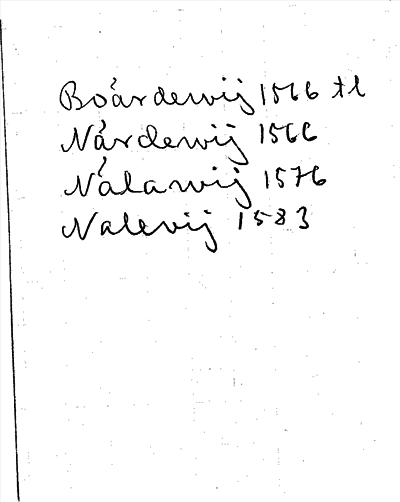 Boárdewij 1566 tl
Nárdewij 1566
Nálawij 1576
Nalevij 1583